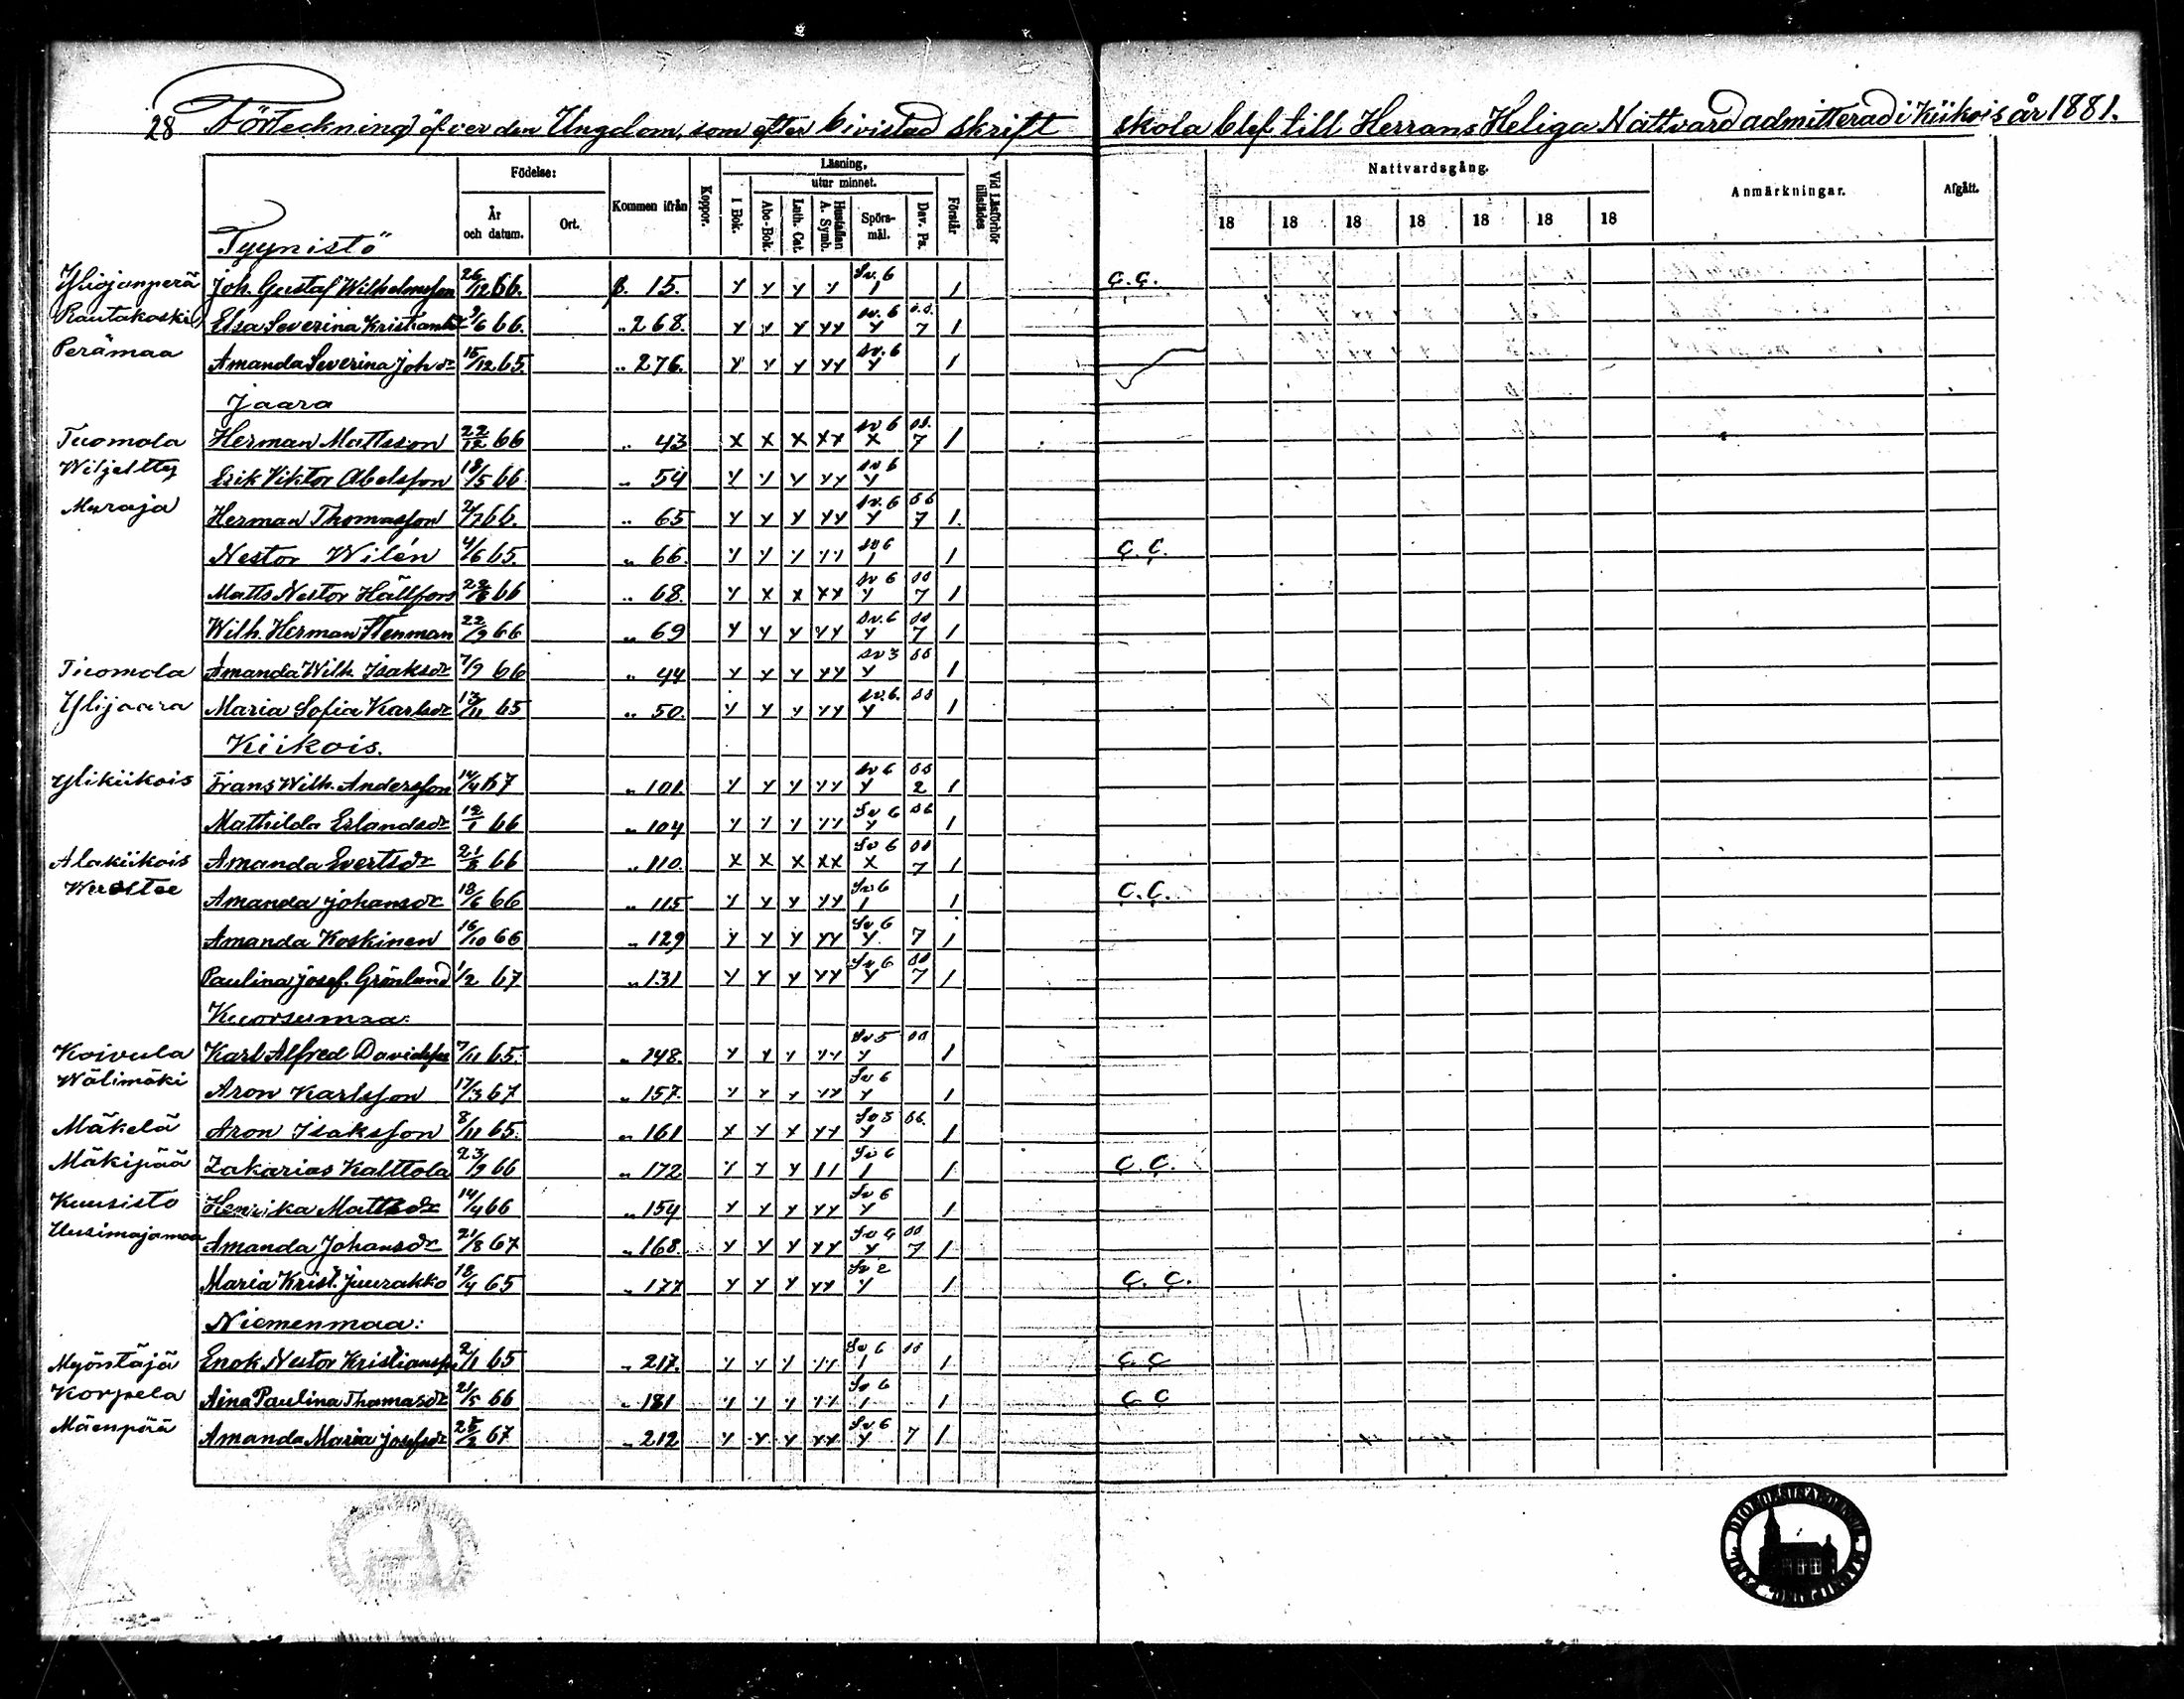 28 Förteckning öfver den Ungdom, som efter bivistad skrift skola blef till Herrans Heliga Nattvard admitterad i Kiikois år 1881.
Födelse: Läsning, Nattvardsgång.
utur minnet.
År och datum. Ort. Kommen ifrån Koppor. I Bok. Abc-Bok. Luth. Cat. Hustaflan A. Symb. Spörsmål. Dav. Ps. Förstår Vid Läsförhör tillstädes 18 18 18 18 18 18 18 Anmärkningar. Afgått.
Tyynistö
Yliojanperä Joh. Gustaf Wilhelmsson 26/12 66. p. 15. Y Y Y Y Sv. 6 1 1 C.C.
Rautakoski Elsa Severina Kristiansdr 9/6 66. „ 268. Y Y Y YY sv. 6 Y 7 1
Perämaa Amanda Severina Joh dr 15/12 65. „ 276. Y Y Y YY sv. 6 Y 1
Jaara
Tuomola Herman Mattsson 22/12 66 „ 43 X X X XX sv 6 X 7 1
Erik Viktor Abelsson 18/5 66 „ 54 Y Y Y YY sv 6 Y
Muraja Herman Thomasson 2/7 66. „ 65 Y Y Y YY sv. 6 Y 7 1.
Nestor Wilén 4/6 65. „ 66. Y Y Y YY sv 6 1 1 C.C.
Matts Nestor Hällfors 22/8 66 „ 68. Y X X XX sv 6 Y 7 1
Wilh. Herman Stenman 22/9 66 „ 69 Y Y Y YY sv. 6 Y 7 1
Tuomola Amanda Wilh. Isaksdr 7/9 66 „ 44 Y Y Y YY sv 3 Y 1
Ylijaara Maria Sofia Karlsdr 13/11 65 „ 50. Y Y Y YY sv. 6. Y 1
Kiikois.
Ylikiikois Frans Wilh. Andersson 14/4 67 „ 101. Y Y Y YY sv 6 Y 2 1
Mathilda Erlandsdr 12/1 66 „ 104 Y Y Y YY Sv 6 Y 1
Alakiikois Amanda Evertsdr 21/8 66 „ 110. X X X XX Sv 6 X 7 1
Amanda Johansdr 18/6 66 „ 115 Y Y Y YY Sv 6 1 1 C.C.
Amanda Koskinen 16/10 66 „ 129 Y Y Y YY Sv 6 Y 7 1
Paulina Josef. Grönlund 1/2 67 „ 131 Y Y Y YY Sv 6 Y 7 1
Kuorsumaa:
Koivula Karl Alfred Davidsson 7/11 65. „ 148. Y Y Y YY Sv 5 Y 1
Wälimäki Aron Karlsson 17/3 67 „ 157. Y Y Y YY Sv 6 Y 1
Mäkelä Aron Isaksson 8/11 65. „ 161 X Y X YY Sv 5 Y 1
Mäkipää Zakarias Kalttola 23/9 66 „ 172 Y Y Y 11 Sv 6 1 1 C.C.
Kuusisto Henrika Mattsdr 14/4 66 „ 154 Y Y Y YY Sv 6 Y 1
Uusimajamaa Amanda Johansdr 21/8 67 „ 168. Y Y Y YY Sv 4 Y 7 1
Maria Krist. Juurakko 18/4 65 „ 177 Y Y Y YY Sv 2 Y 1 C. C.
Niemenmaa:
Myöntäjä Enok Nestor Kristiansson 2/1 65 „ 217. Y Y Y YY Sv 6 1 1 C. C
Korpela Aina Paulina Thomasdr 21/5 66 „ 181 Y Y Y YY Sv 6 1 1 C C
Mäenpää Amanda Maria Josefsdr 25/2 67 „ 212 Y Y Y YY Sv 6 Y 7 1